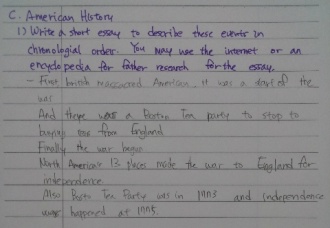 C. American History
1) Write a short essay to describe these events in
chronologial order. You may use the internet or an
encyclopedia for father research for the essay.
- First british massacred American. It was a start of the
war.
And there was a Boston Tea party to stop to
buying from England
Finally the war began
North America's 13 places made the war to England for
independence
Also Boston Tea Party was in 1773 and independence
were happened at 1775.